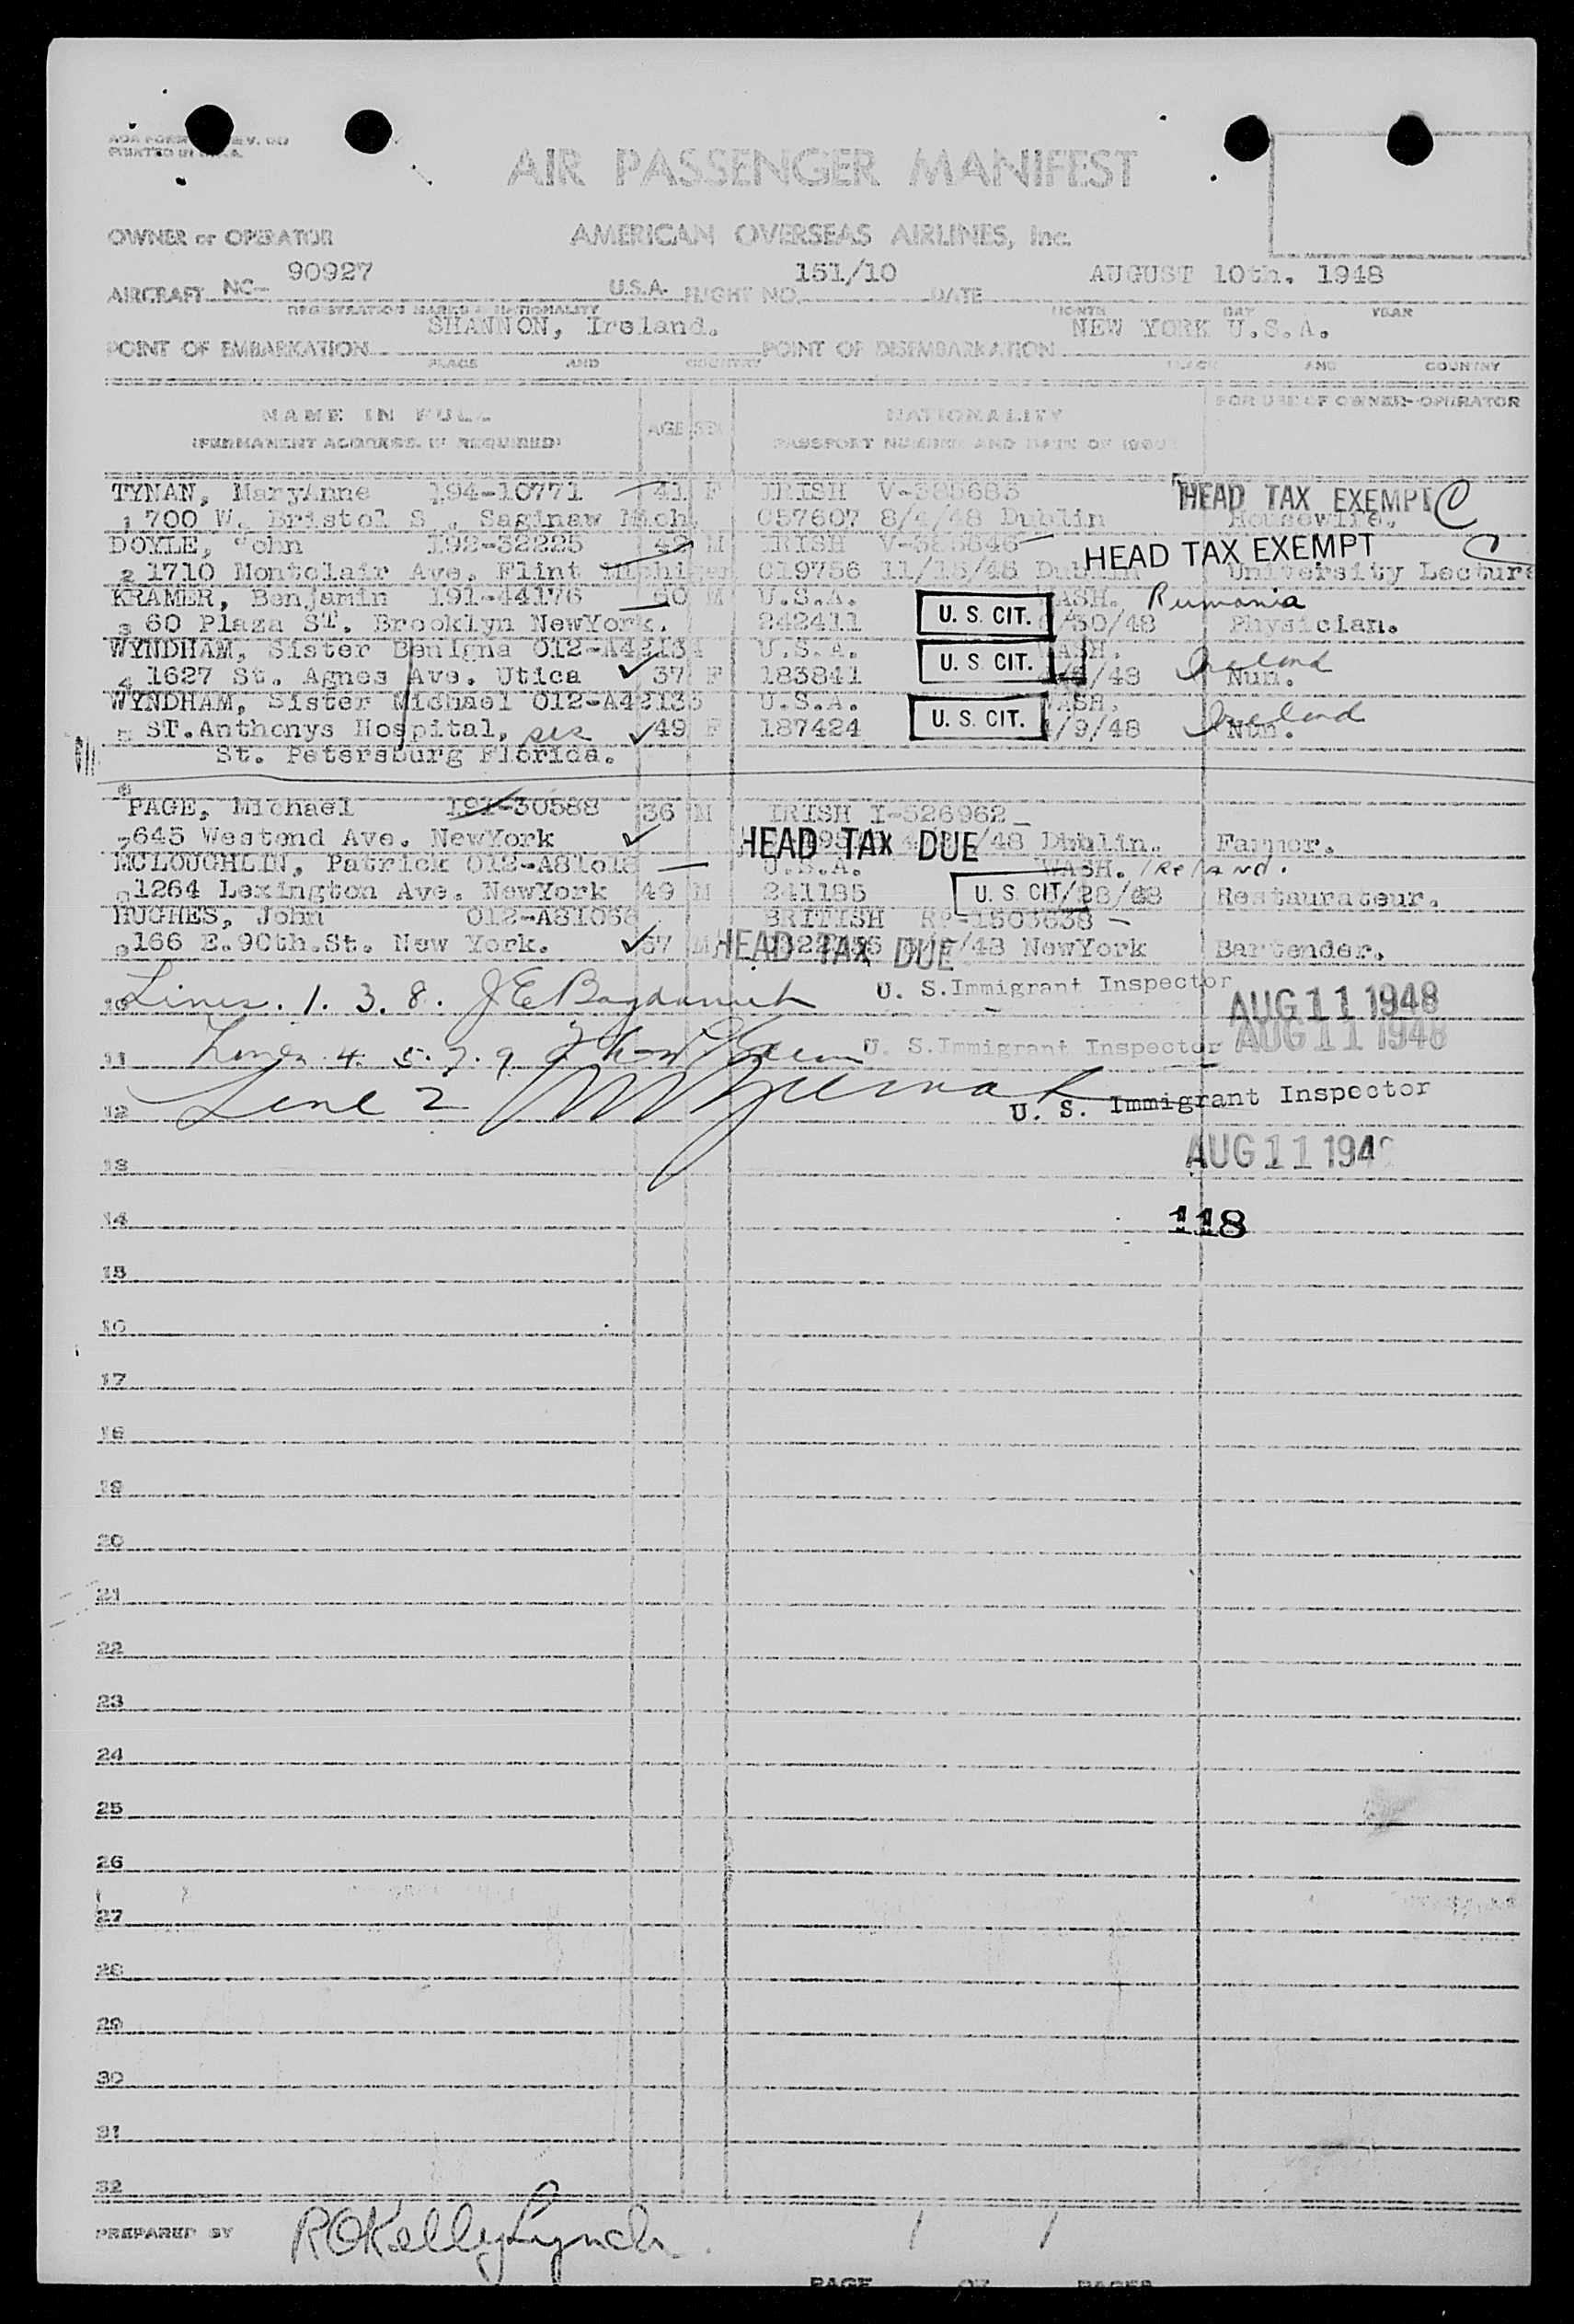 AIR PASSENGER MANIFEST
OWNER or OPERATOR AMERICAN OVERSEAS AIRLINES, Inc.
AIRCRAFT NC- 90927 U.S.A. FLIGHT NO. 151/10 DATE AUGUST 10th. 1948
REGISTRATION MARKS & NATIONALITY MONTH DAY YEAR
POINT OF EMBARKATION SHANNON, Ireland. POINT OF DISEMBARKATION NEW YORK U.S.A.
PLACE AND COUNTRY PLACE AND COUNTRY
NAME IN FULL AGE SEX NATIONALITY FOR USE OF OWNER-OPERATOR
(PERMANENT ADDRESS, IF REQUIRED) PASSPORT NUMBER AND DATE OF ISSUE
TYNAN, MaryAnne 194-10771 41 F IRISH V-385683 HEAD TAX EXEMPT C
1 700 W. Bristol S , Saginaw Mich. C57607 8/4/48 Dublin Housewife.
DOYLE, John 192-32225 M IRISH HEAD TAX EXEMPT C
2 1710 Montclair Ave. Flint Michigan C19756 Dublin University Lecture
KRAMER, Benjamin 191-44176 50 M U.S.A. U. S. CIT. WASH. Rumania
3 60 Plaza ST. Brooklyn NewYork. 242411 /30/48 Physician.
WYNDHAM, Sister Benigna 012-A42134 U.S.A. U. S. CIT. WASH. Ireland
4 1627 St. Agnes Ave. Utica 37 F 183841 /48 Nun.
WYNDHAM, Sister Michael 012-A42135 U.S.A. U. S. CIT. WASH. Ireland
5 ST.Anthonys Hospital, 49 F 187424 /9/48 Nun.
St. Petersburg Florida.
6
PAGE, Michael 191-30588 36 M IRISH I-326962
7 645 Westend Ave. NewYork HEAD TAX DUE /48 Dublin. Farmer.
MCLOUGHLIN, Patrick 012-A81018 U.S.A. WASH. IReland.
8 1264 Lexington Ave. NewYork 49 M 241185 U. S. CIT /28/48 Restaurateur.
HUGHES, John BRITISH
9 166 E.90th.St. New York. M HEAD TAX DUE /48 NewYork Bartender.
10 Lines. 1. 3. 8. U. S. Immigrant Inspector AUG 11 1948
11 Lines 4. 5. 7. 9 U. S. Immigrant Inspector AUG 11 1948
12 Line 2 U. S. Immigrant Inspector
13 AUG 11 194
14 118
15
16
17
18
19
20
21
22
23
24
25
26
27
28
29
30
31
32
PREPARED BY ROKellyLynch. 1 1
PAGE OF PAGES